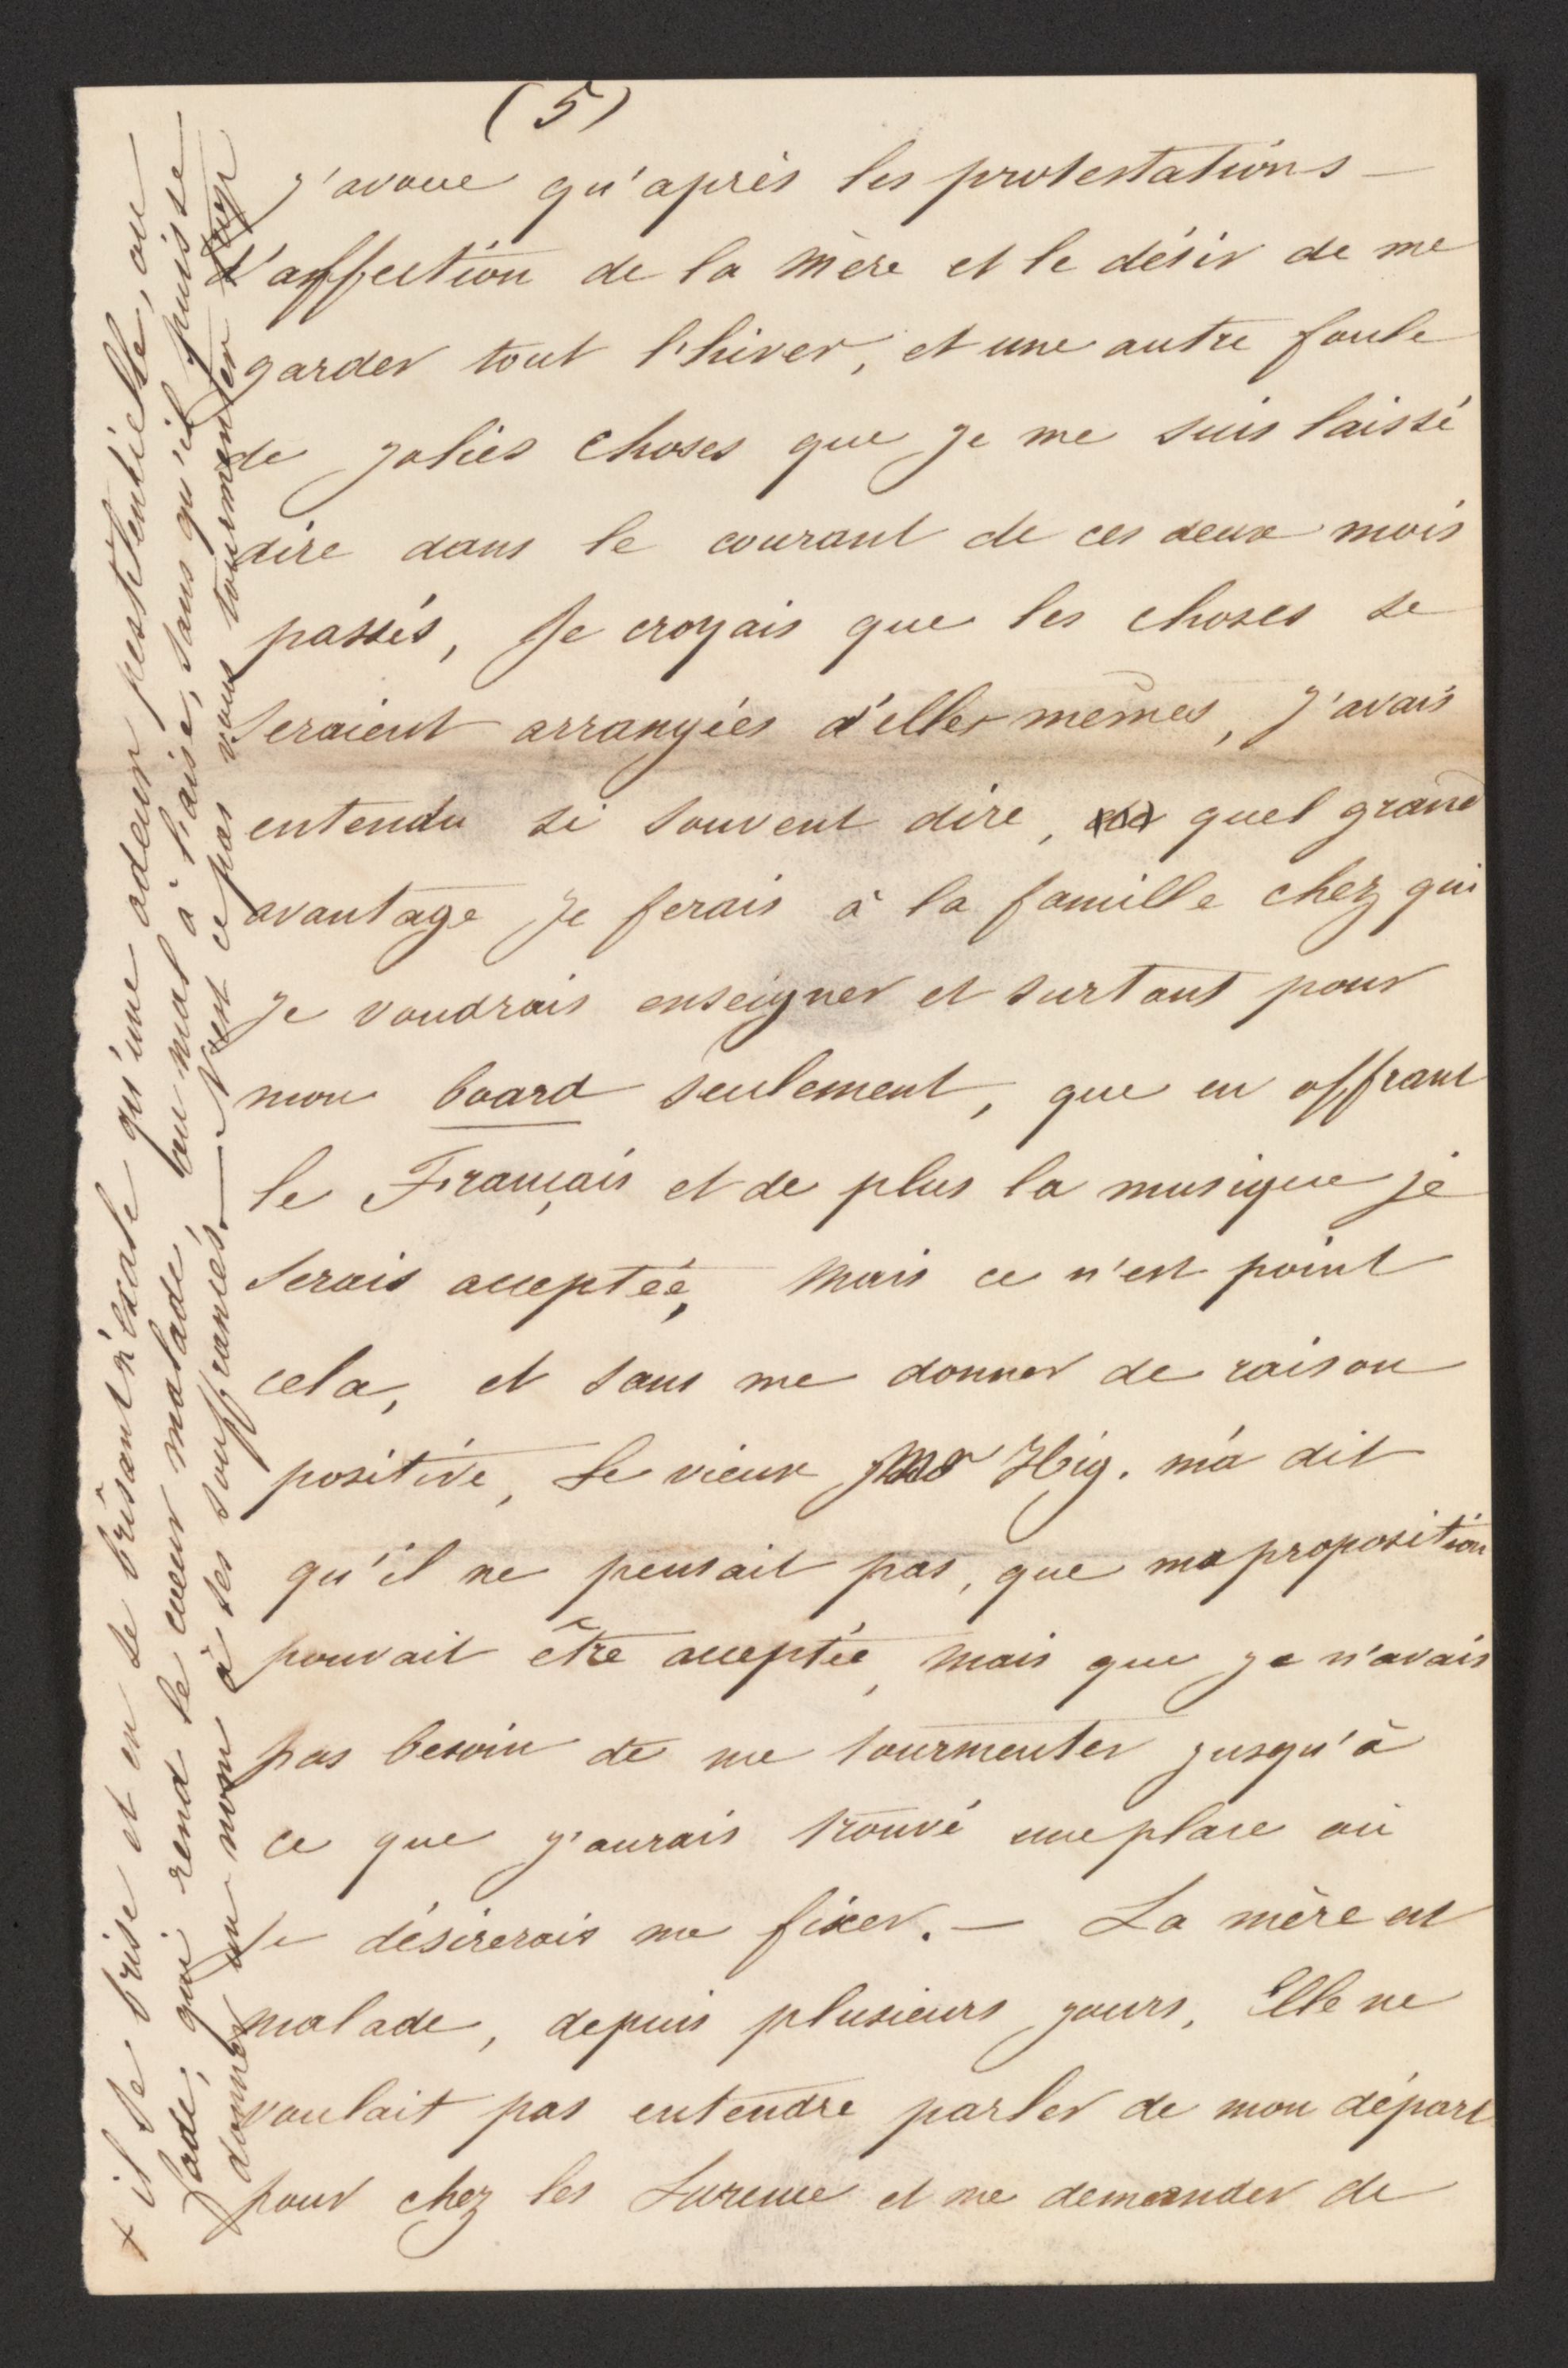 (5)
j'avoue qu'après les protestations —
d'affection de la mère et le désir de me
garder tout l'hiver, et une autre foule
de jolies choses que je me suis laissé
dire dans le courant de ces deux mois
passés, Je croyais que les choses se
seraient arrangées d'elles mêmes, j'avais
entendu si souvent dire, quel grand
avantage je ferais à la famille chez qui
je voudrais enseigner et surtout pour
mon board seulement, que en offrant
le Français et de plus la musique je
serais acceptée, mais ce n'est point
cela, et sans me donner de raison
positive, le vieux Mr Hig. m'a dit
qu'il ne pensait pas, que ma proposition
pouvait être acceptée, mais que je n'avais
pas besoin de me tourmenter jusqu'à
ce que j'aurais trouvé une place où
je désirerais me fixer. — La mère est
malade, depuis plusieurs jours, Elle ne
voulait pas entendre parler de mon départ
pour chez les et me demander de
+ il se brise et en se brisant n'exale qu'une odeur pestilentielle, ou
fade, qui rend le cœur malade, ou mal à l'aise, sans qu'il puisse
donner un nom à ses souffrances. — N'est ce pas vous tourmenter trop